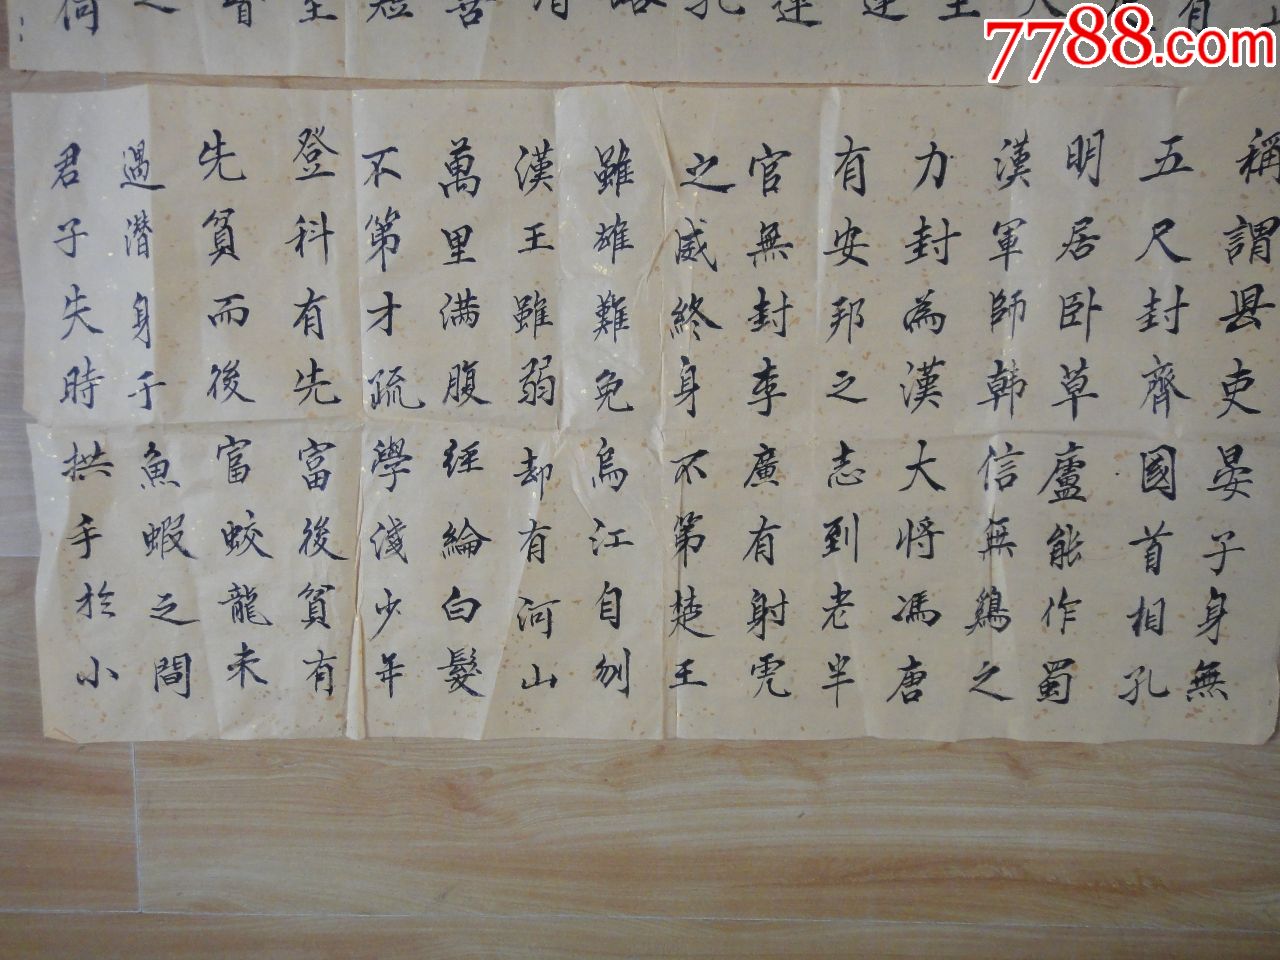 7788.com
稱謂县吏晏子身無
五尺封齊國首相孔
明居卧草廬能作蜀
漢軍師韩信無鷄之
力封為漢大将馮唐
有安邦之志到老半
官無封李廣有射虎
之威終身不第楚王
雖雄難免烏江自刎
漢王雖弱却有河山
萬里满腹经綸白髮
不第才疏學淺少年
登科有先富後貧有
先貧而後富蛟龍未
遇潜身于魚蝦之間
君子失時拱手於小